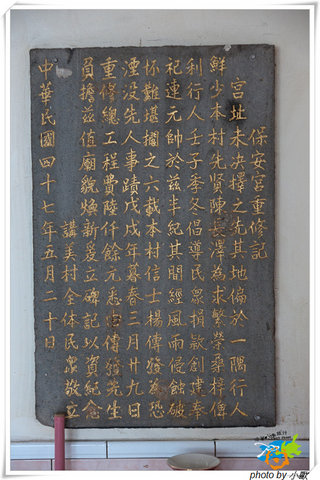 保安宮重修記
宮址未決擇之先其地偏於一隅行人
鮮少本村先賢陳長澤為求繁榮桑梓便
利行人壬子季冬倡導民眾捐款創建奉
祀連元帥於茲半紀其間經風雨侵蝕破
坏難堪擱之六載本村信士楊傳發為恐
湮没先人事蹟戊戌年暮春三月廿九日
重修總工程費陸仟餘元悉由傳發先生
負擔茲值廟貌煥新爰立碑記以資紀念
講美村全体民眾敬立
中華民國四十七年五月二十日
photo by 小歐